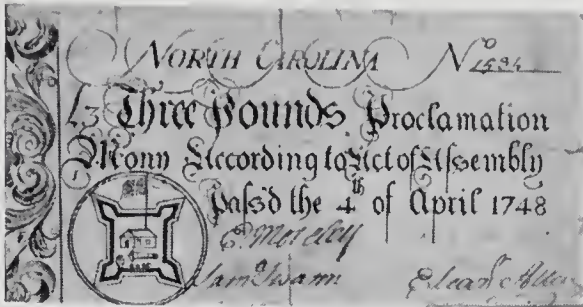 NORTH CAROLINA No 1584
£3 Three Pounds Proclamation
Mony According to Act of Assembly
Pass'd the 4th of April 1748
E. Moseley
Sam Swann
Elean Allen